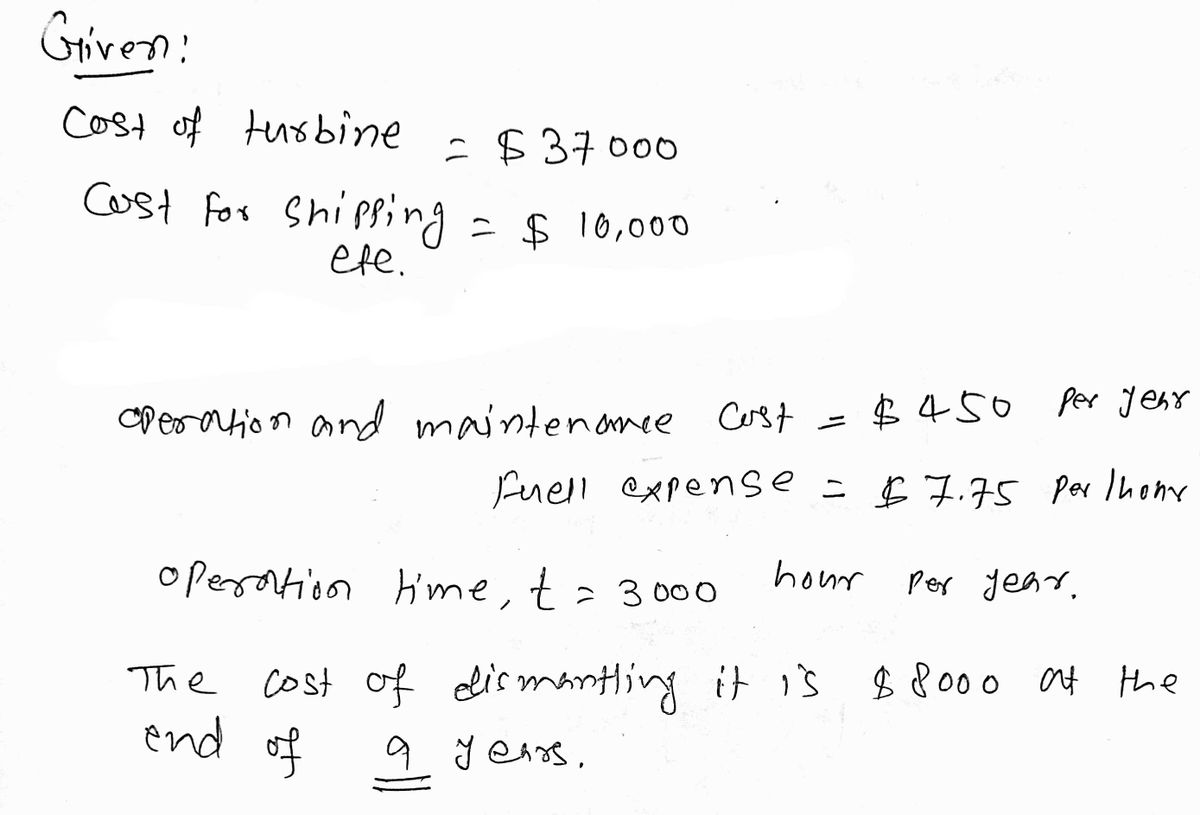 Given:
Cost of turbine = $ 37000
Cost for Shipping = $ 10,000
etc.
operation and maintenance Cost = $ 450 per year
fuell expense = $ 7.75 per 1hour
operation time, t = 3000 hour per year.
The cost of dismantling it is $ 8000 at the
end of 9 years.